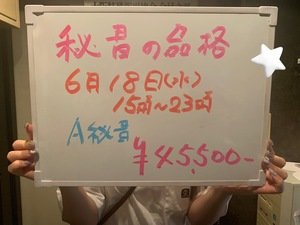 秘書の品格
6月18日(水)
15時~23時
A秘書
¥45,500-